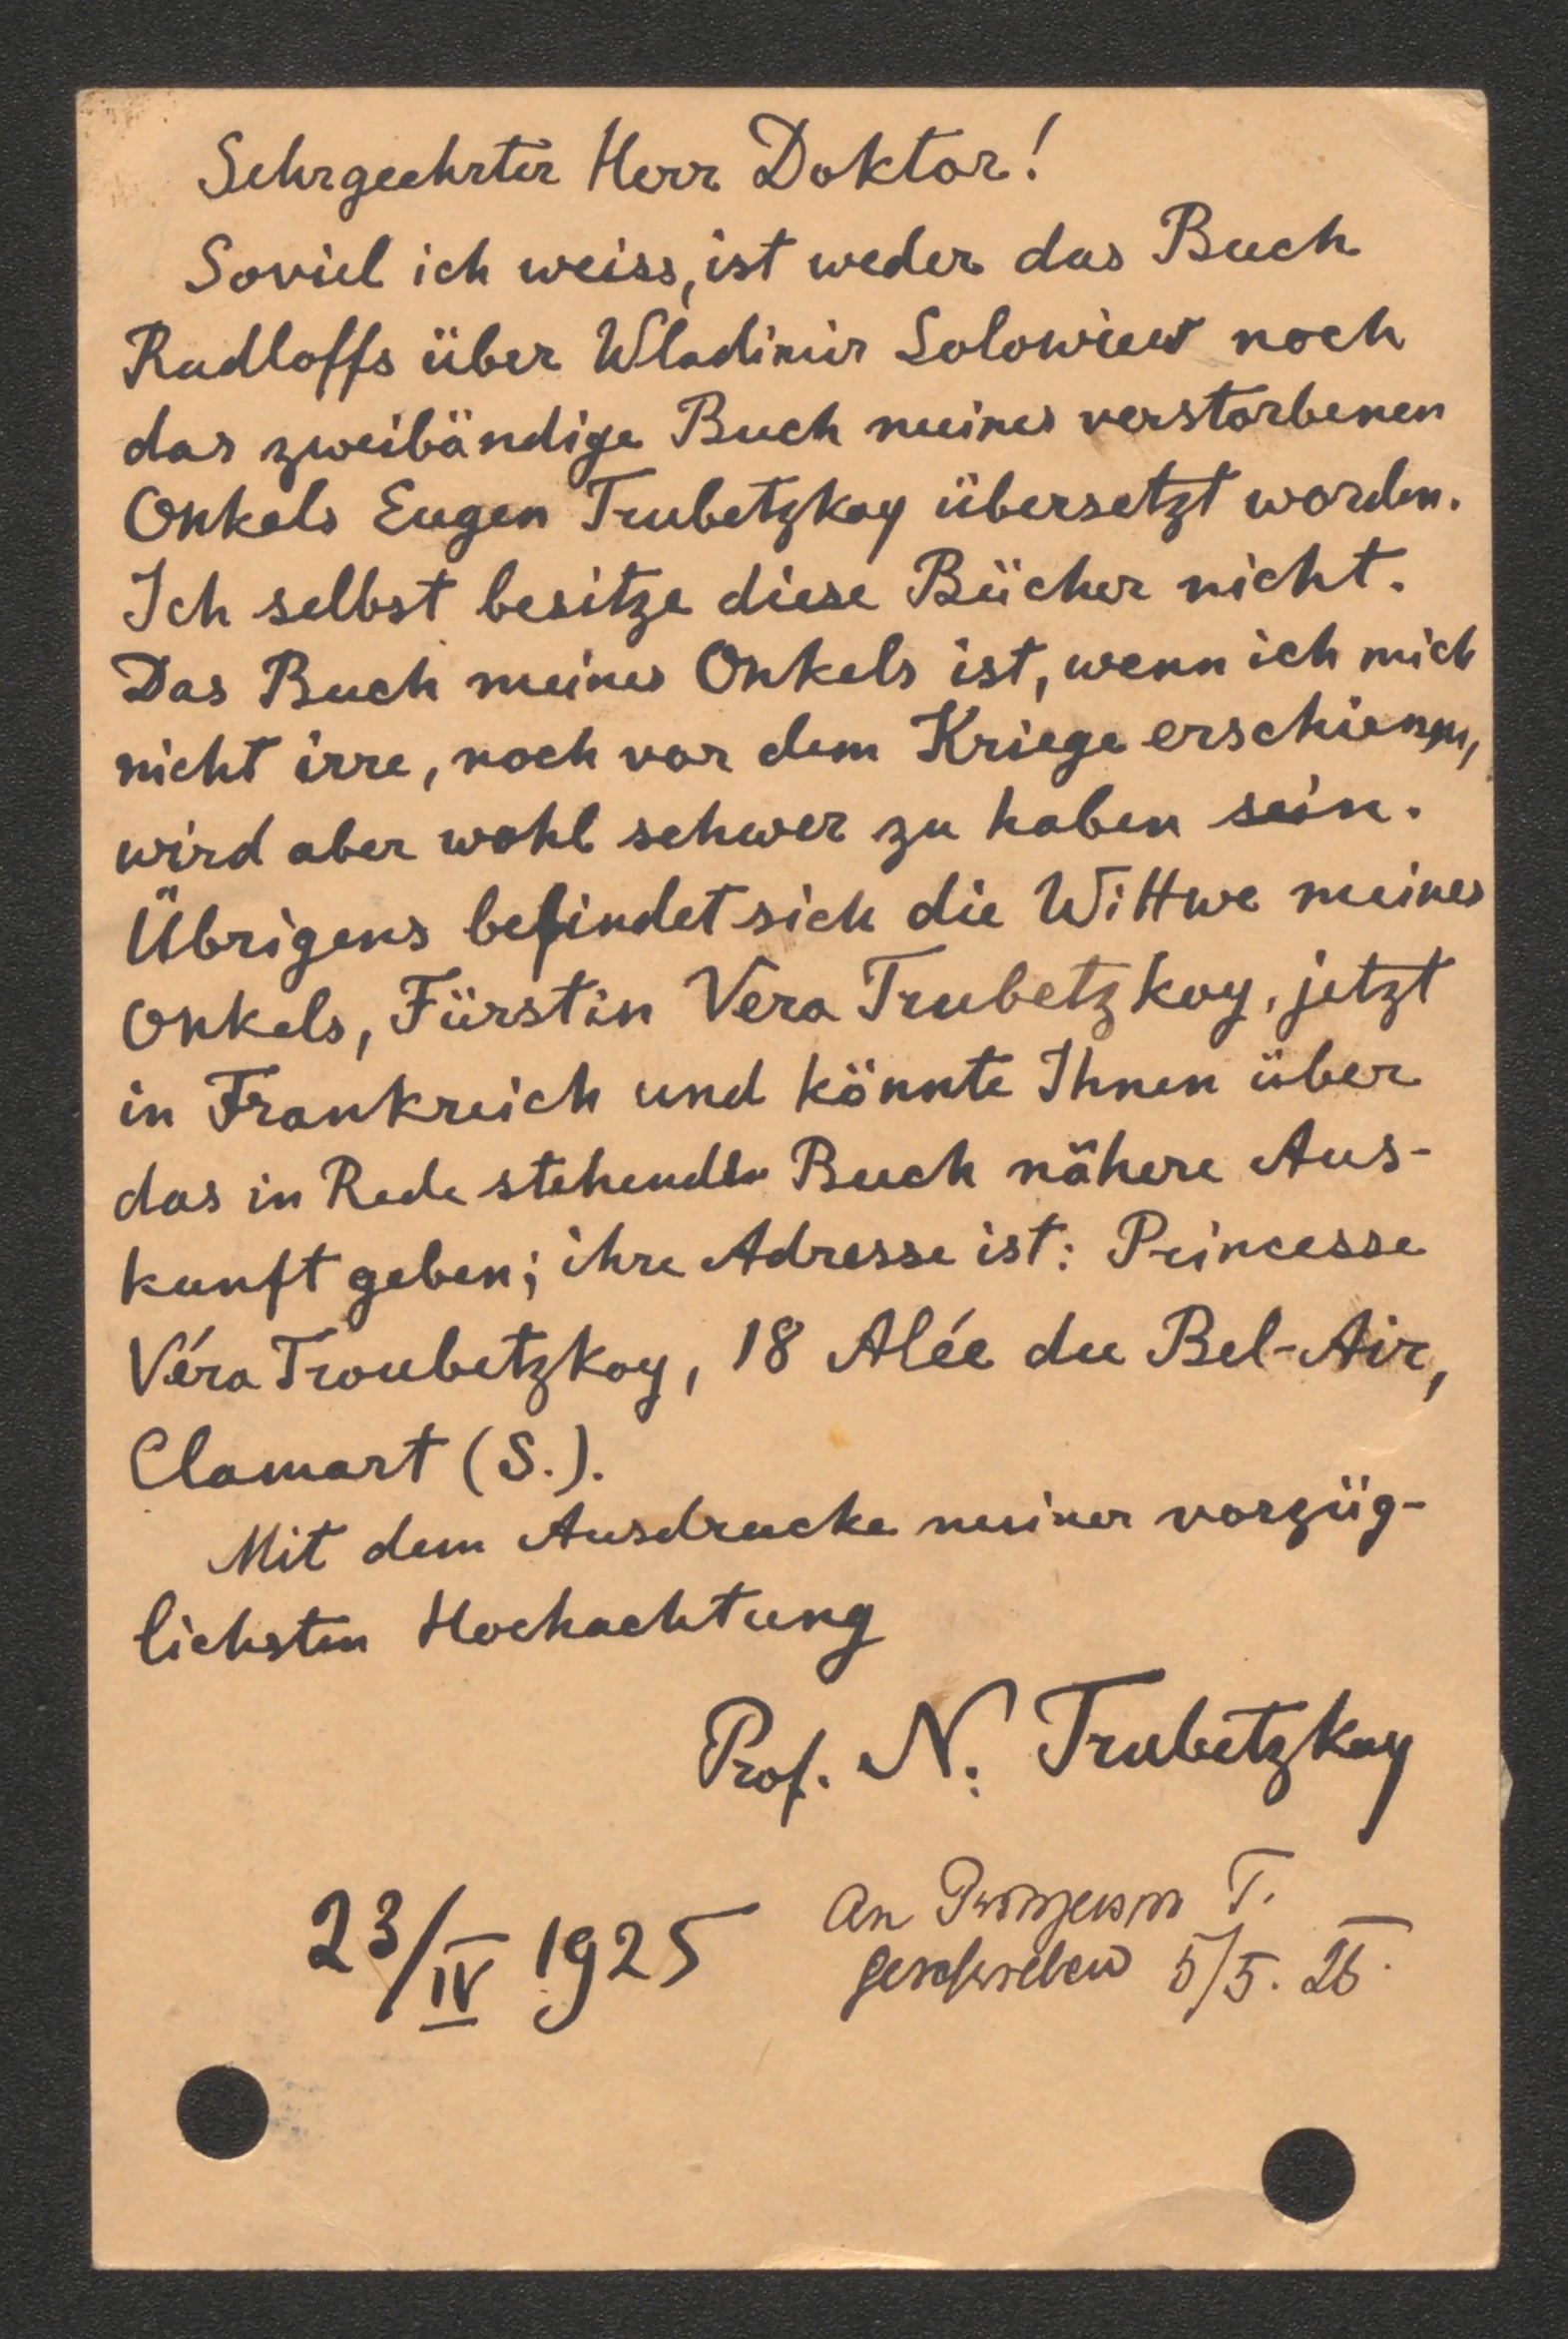 Sehrgeehrter Herr Doktor!
Soviel ich weiss, ist weder das Buch
Radloffs über Wladimir Solowiew noch
das zweibändige Buch meines verstorbenen
Onkels Eugen Trubetzkoy übersetzt worden.
Ich selbst besitze diese Bücher nicht.
Das Buch meines Onkels ist, wenn ich mich
nicht irre, noch vor dem Kriege erschienen,
wird aber wohl schwer zu haben sein.
Übrigens befindet sich die Wittwe meines
Onkels, Fürstin Vera Trubetzkoy, jetzt
in Frankreich und könnte Ihnen über
das in Rede stehende Buch nähere Aus-
kunft geben; ihre Adresse ist: Princesse
Véra Troubetzkoy, 18 Alée du Bel-Air,
Clamart (S.).
Mit dem Ausdrucke meiner vorzüg-
lichsten Hochachtung
Prof. N. Trubetzkoy
23/IV 1925
An Prinzessin T.
geschrieben 5/5. 25.